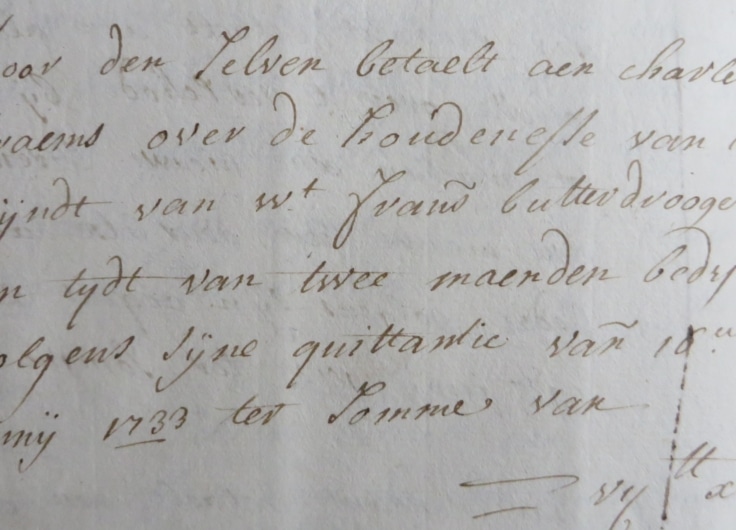 oor den selven betaelt aen charle
raems over de houdenesse van
ijndt van wt. frañs butterdrooge
n tydt van twee maenden bedr
olgens sijne quittantie vañ 18
mij 1733 ter somme van
vij lt x